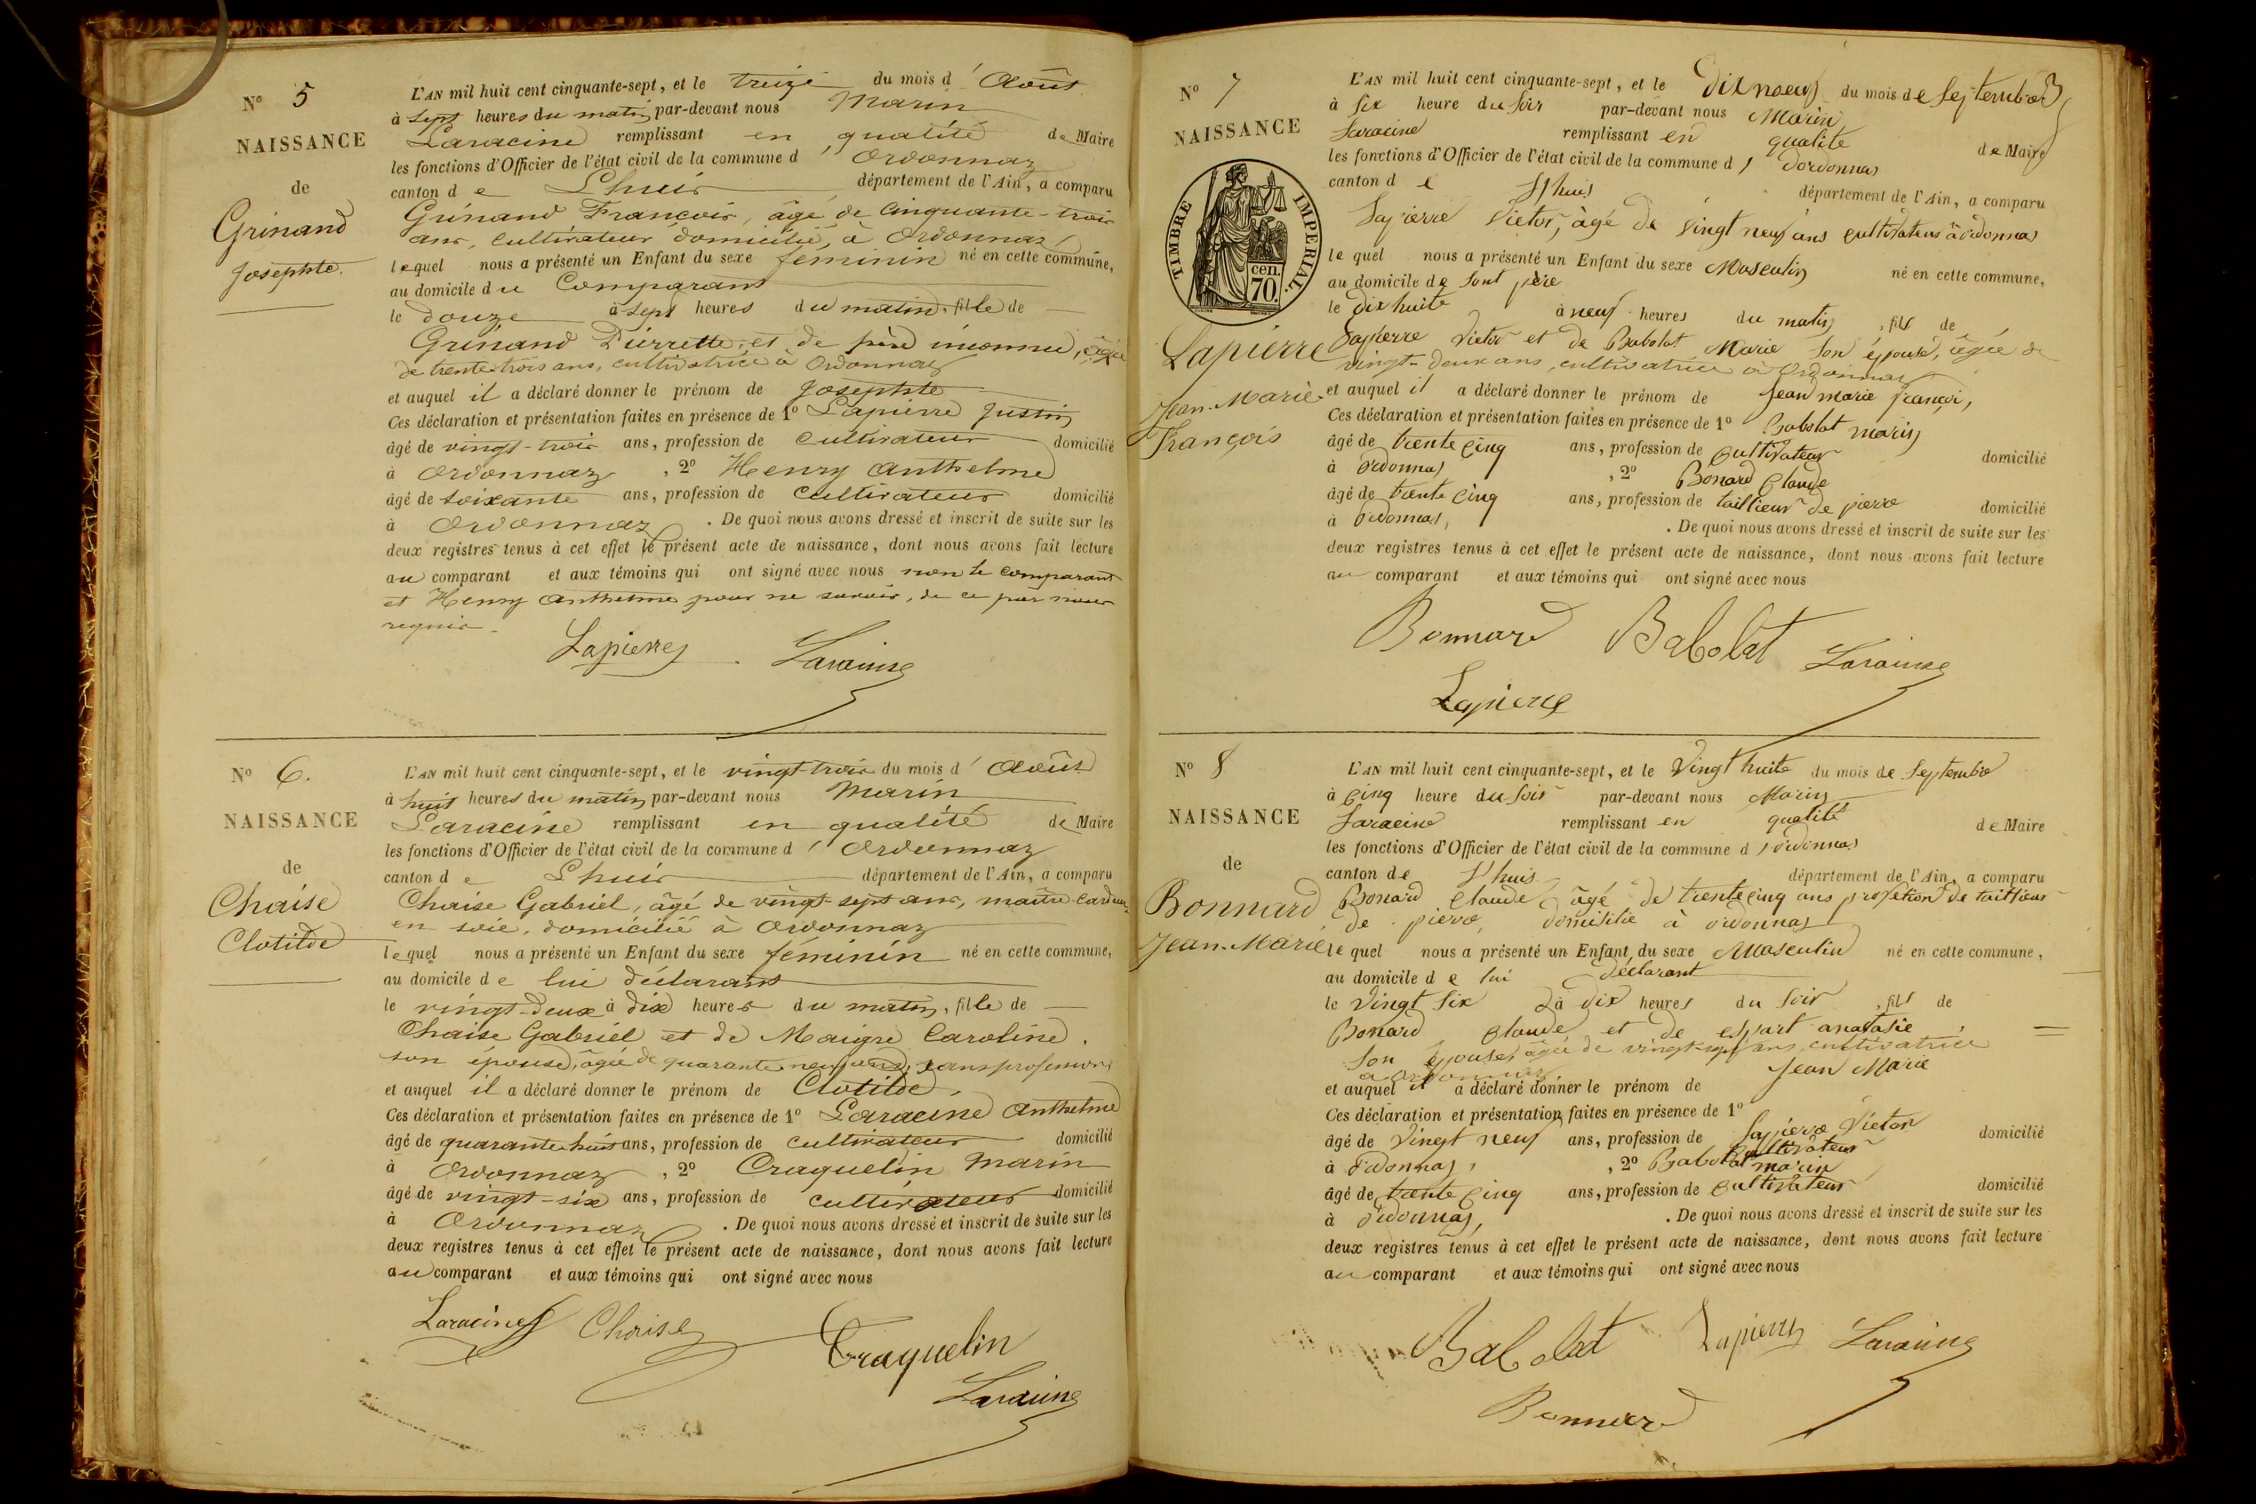 N° 5
NAISSANCE
de
Grinand
Josephte.
L'AN mil huit cent cinquante-sept, et le treize du mois d'Août
à sept heures du matin par-devant nous Marin
Laracine remplissant en qualité de Maire
les fonctions d'Officier de l'état civil de la commune d'Ordonnaz
canton de Lhuis département de l'Ain, a comparu
Grinand François, âgé de cinquante-trois
ans, cultivateur domicilié, à Ordonnaz
lequel nous a présenté un Enfant du sexe féminin né en cette commune,
au domicile du Comparant
le douze à sept heures du matin, fille de
Grinand Pierrette, et de père inconnu, âgée
de trente trois ans, cultivatrice à Ordonnaz
et auquel il a déclaré donner le prénom de Josephte
Ces déclaration et présentation faites en présence de 1° Lapierre Justin
âgé de vingt-trois ans, profession de cultivateur domicilié
à Ordonnaz, 2° Henry Anthelme
âgé de soixante ans, profession de cultivateur domicilié
à Ordonnaz. De quoi nous avons dressé et inscrit de suite sur les
deux registres tenus à cet effet le présent acte de naissance, dont nous avons fait lecture
au comparant et aux témoins qui ont signé avec nous non le comparant
et Henry Anthelme pour ne savoir, de ce par nous
requis.
Lapierre Laracine
N° 6.
NAISSANCE
de
Chaise
Clotilde
L'AN mil huit cent cinquante-sept, et le vingt-trois du mois d'Août
à huit heures du matin par-devant nous Marin
Laracine remplissant en qualité de Maire
les fonctions d'Officier de l'état civil de la commune d'Ordonnaz
canton de Lhuis département de l'Ain, a comparu
Chaise Gabriel, âgé de vingt-sept ans, maître cardeur
en soie, domicilié à Ordonnaz
lequel nous a présenté un Enfant du sexe féminin né en cette commune,
au domicile de lui déclarant
le vingt-deux à dix heures du matin, fille de
Chaise Gabriel et de Maigre Caroline.
son épouse, âgée de quarante neuf ans, sans profession
et auquel il a déclaré donner le prénom de Clotilde,
Ces déclaration et présentation faites en présence de 1° Laracine Anthelme
âgé de quarante huit ans, profession de cultivateur domicilié
à Ordonnaz, 2° Craquelin Marin
âgé de vingt-six ans, profession de cultivateur domicilié
à Ordonnaz. De quoi nous avons dressé et inscrit de suite sur les
deux registres tenus à cet effet le présent acte de naissance, dont nous avons fait lecture
au comparant et aux témoins qui ont signé avec nous
Laracine Chaise Craquelin
Laracine
N° 7
NAISSANCE
TIMBRE IMPERIAL.
cen. 70.
Lapierre
Jean-Marie-
François
L'AN mil huit cent cinquante-sept, et le dix noeuf du mois de Septembre
à six heure du soir par-devant nous Marin
Laracine remplissant en qualité de Maire
les fonctions d'Officier de l'état civil de la commune d'dordonnas
canton de Lhuis département de l'Ain, a comparu
Lapierre Victor, âgé de vingt neuf ans cultivateur à ordonnas
le quel nous a présenté un Enfant du sexe Masculin né en cette commune,
au domicile de sont père
le dix huite à neuf heures du matin, fils de
Lapierre Victor et de Babolat Marie son épouse, âgée de
vingt-deux ans, cultivatrice à Ordonnaz
et auquel il a déclaré donner le prénom de Jean marie françoi,
Ces déclaration et présentation faites en présence de 1° Babolat marin
âgé de trente cinq ans, profession de cultivateur domicilié
à ordonnas, 2° Bonard Claude
âgé de trente cinq ans, profession de taillieur de pierre domicilié
à ordonnas,. De quoi nous avons dressé et inscrit de suite sur les
deux registres tenus à cet effet le présent acte de naissance, dont nous avons fait lecture
au comparant et aux témoins qui ont signé avec nous
Bonnard Babolat Laracine
Lapierre
N° 8
NAISSANCE
de
Bonnard
Jean-Marie
L'AN mil huit cent cinquante-sept, et le vingt huite du mois de Septembre
à cinq heure du soir par-devant nous Marin
Laracine remplissant en qualité de Maire
les fonctions d'Officier de l'état civil de la commune d'ordonnas
canton de Lhuis département de l'Ain, a comparu
Bonard Claude âgé de trente cinq ans profetion de taillieur
de pierre, domicilié à ordonnas
le quel nous a présenté un Enfant du sexe Masculin né en cette commune,
au domicile de lui déclarant
le vingt six à dix heures du soir, fils de
Bonard Claude et de espart anatasie
son épouse, âgée de vingt-sept ans, cultivatrice
à Ordonnaz
et auquel il a déclaré donner le prénom de Jean Marie
Ces déclaration et présentation faites en présence de 1° Lapierre Victor
âgé de vingt neuf ans, profession de cultivateur domicilié
à ordonnas, 2° Babolat marin
âgé de trente cinq ans, profession de cultivateur domicilié
à ordonnas,. De quoi nous avons dressé et inscrit de suite sur les
deux registres tenus à cet effet le présent acte de naissance, dont nous avons fait lecture
au comparant et aux témoins qui ont signé avec nous
Babolat Lapierre Laracine
Bonnard